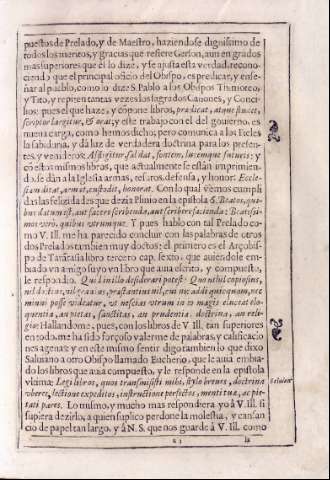 puestos de Prelado, y de Maestro, haziendose dignissimo de
todos los meritos, y gracias que refiere Gerson, aun en grados
mas superiores que èl lo dize, y se ajusta esta verdad recono-
ciendo que el principal oficio del Obispo, es predicar, y ense-
ñar al pueblo, como lo dize S. Pablo a los Obispos Thimoteo,
y Tito, y repiten tantas vezes los sagrados Canones, y Conci-
lios: pues el que haze, y cõpone libros, prædicat, atque
scriptor largitur, & orat; y este trabajo con el del gouierno, es
nueua carga, como hemos dicho; pero comunica a los Eccles
la sabiduria, y dà luz de verdadera doctrina para los presen-
tes, y venideros: fontem, lucemque futuris: y
cõ estos mismos libros, que actualmente se estàn imprimien-
do se dàn à la Iglesia armas, tesoros, defensa, y honor: Eccle-
siam ditat, armat, custodit, honorat. Con lo qual vemos cumpli
das las felizidades que dezia Plinio en la epistola 6. Beatos, qui-
bus datum est, aut facere scribenda, aut scribere facienda: Beatissi-
mos verò, quibus utrumque. Y pues hablo con tal Prelado co-
mo V. Ill. me ha parecido concluir con las palabras de otros
dos Prelados tambien muy doctos: el primero es el Arçobis-
po de Tarãtasia libro tercero cap. sexto, que auiendole em-
biado vn amigo suyo vn libro que auia escrito, y compuesto,
le respondio. Quid in illo desiderari potest? Quo nihil copiosius,
nihil doctius, nihil me addi quicquam, nec
minui posse videatur, vt nescias vtrum in eo magis eluceat elo-
quentia, an pietas, sanctitas, an prudentia doctrina, an reli-
gio: Hallandome, pues, con los libros de V. Ill. tan superiores
en todo, me ha sido forçoso valerme de palabras, y calificacio
nes agenas: y en este mismo sentir digo tambien lo que dixo
Saluiano a otro Obispo llamado Eucherio, que le auia embia-
do los libros que auia compuesto, y le responde en la epistola
vltima: Legi libros, quos transmisisti mihi, stylo breues, doctrina
vberes, lectione expeditos, instructione perfectos, menti tuæ, ac pie-
tati pares. Lo mismo, y mucho mas respondiera yo à V. Ill. si
supiera dezirlo, a quien suplico perdone la molestia, y cansan
cio de papel tan largo, y à N. S. que nos guarde à V. Ill. como
la